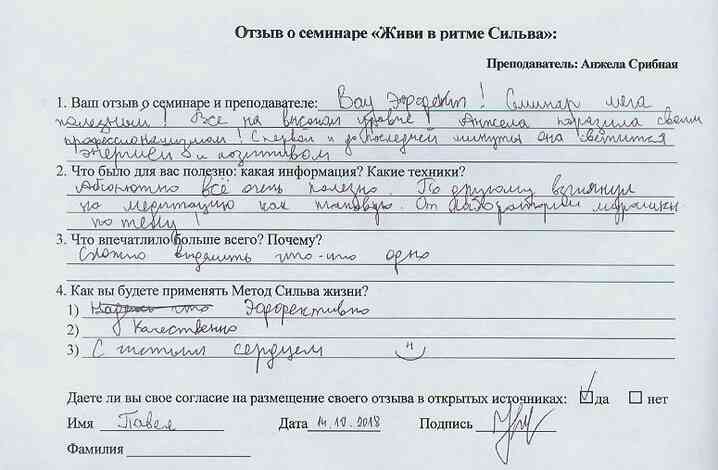 Отзыв о семинаре «Живи в ритме Сильва»:
Преподаватель: Анжела Срибная
1. Ваш отзыв о семинаре и преподавателе: Вау Эффект! Семинар мега
полезный! Всё на высоком уровне! Анжела поразила своим
профессионализмом! С первой и до последней минуты она светится
энергией и позитивом
2. Что было для вас полезно: какая информация? Какие техники?
Абсолютно всё очень полезно. По другому взглянул
на медитацию как таковую. От лаборатории мурашки
по телу!
3. Что впечатлило больше всего? Почему?
Сложно выделить что-то одно
4. Как вы будете применять Метод Сильва жизни?
1) Эффективно
2) Качественно
3) С чистым сердцем
Даете ли вы свое согласие на размещение своего отзыва в открытых источниках: да нет
Имя Павел Дата 14.10.2018 Подпись
Фамилия